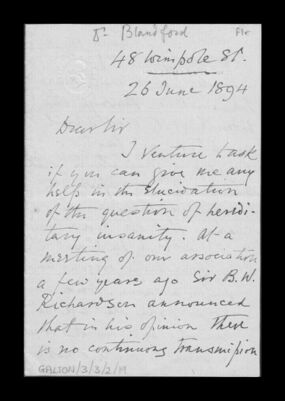 Dr Blandford
48 Wimpole St.
26 June 1894
Dear Sir
I venture to ask
if you can give me any
help in the elucidation
of the question of heredi-
tary insanity. At a
meeting of our association
a few years ago Sir B. W.
Richardson announced
that in his opinion there
is no continuous transmission
GALTON/3/3/2/